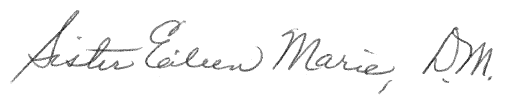 Sister Eileen Marie, D.M.